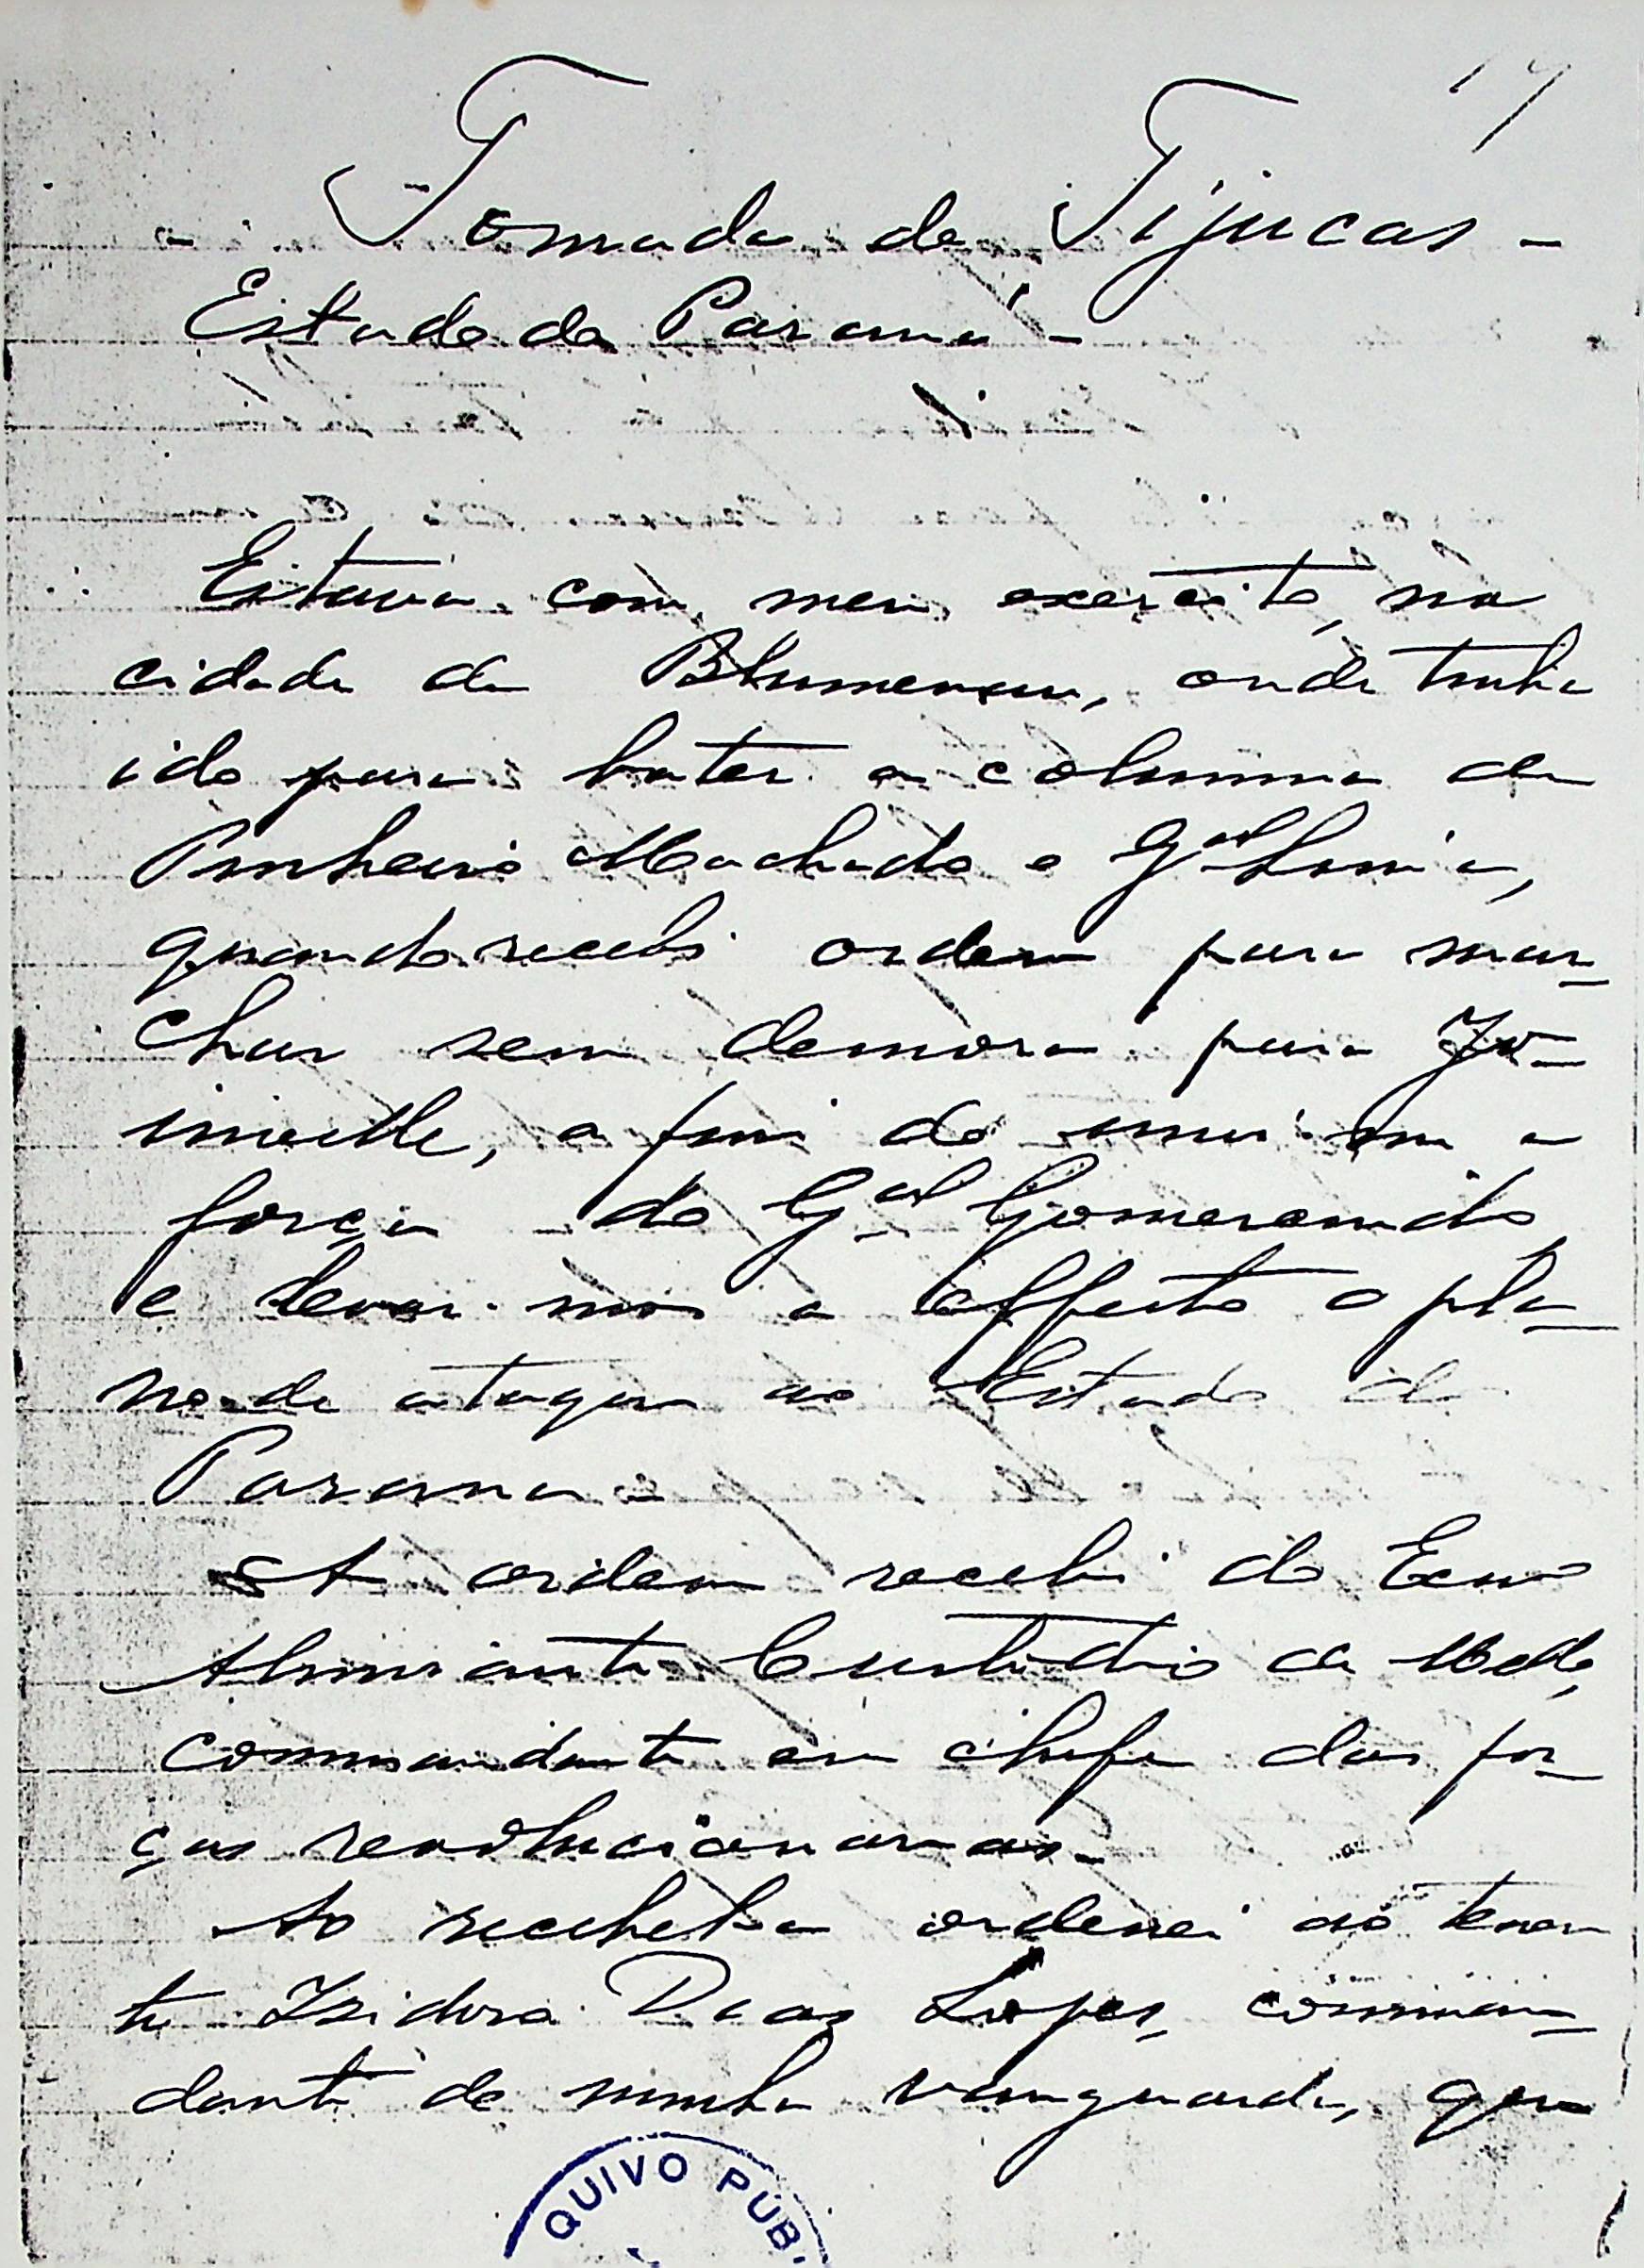 17
Tomada de Tijucas -
Estado do Paraná -
Estava com meu exercito, na
cidade de Blumenau, onde tinha
ido para bater a columna de
Pinheiro Machado e Gal Lima,
quando recebi ordem para mar-
char sem demora para Jo-
inville, a fim de unir-me a
força do Gal Gomercindo
e levar-mos a effeito o pla-
no de ataque ao Estado do
Paraná -
A ordem recebi do Exmo
Almirante Custodio de Mello,
commandante em chefe das for-
ças revolucionarias.
Ao recebel-a ordenei ao tenen
te Izidoro Dias Lopes, comman-
dante de minha vanguarda, que
QUIVO PÚB